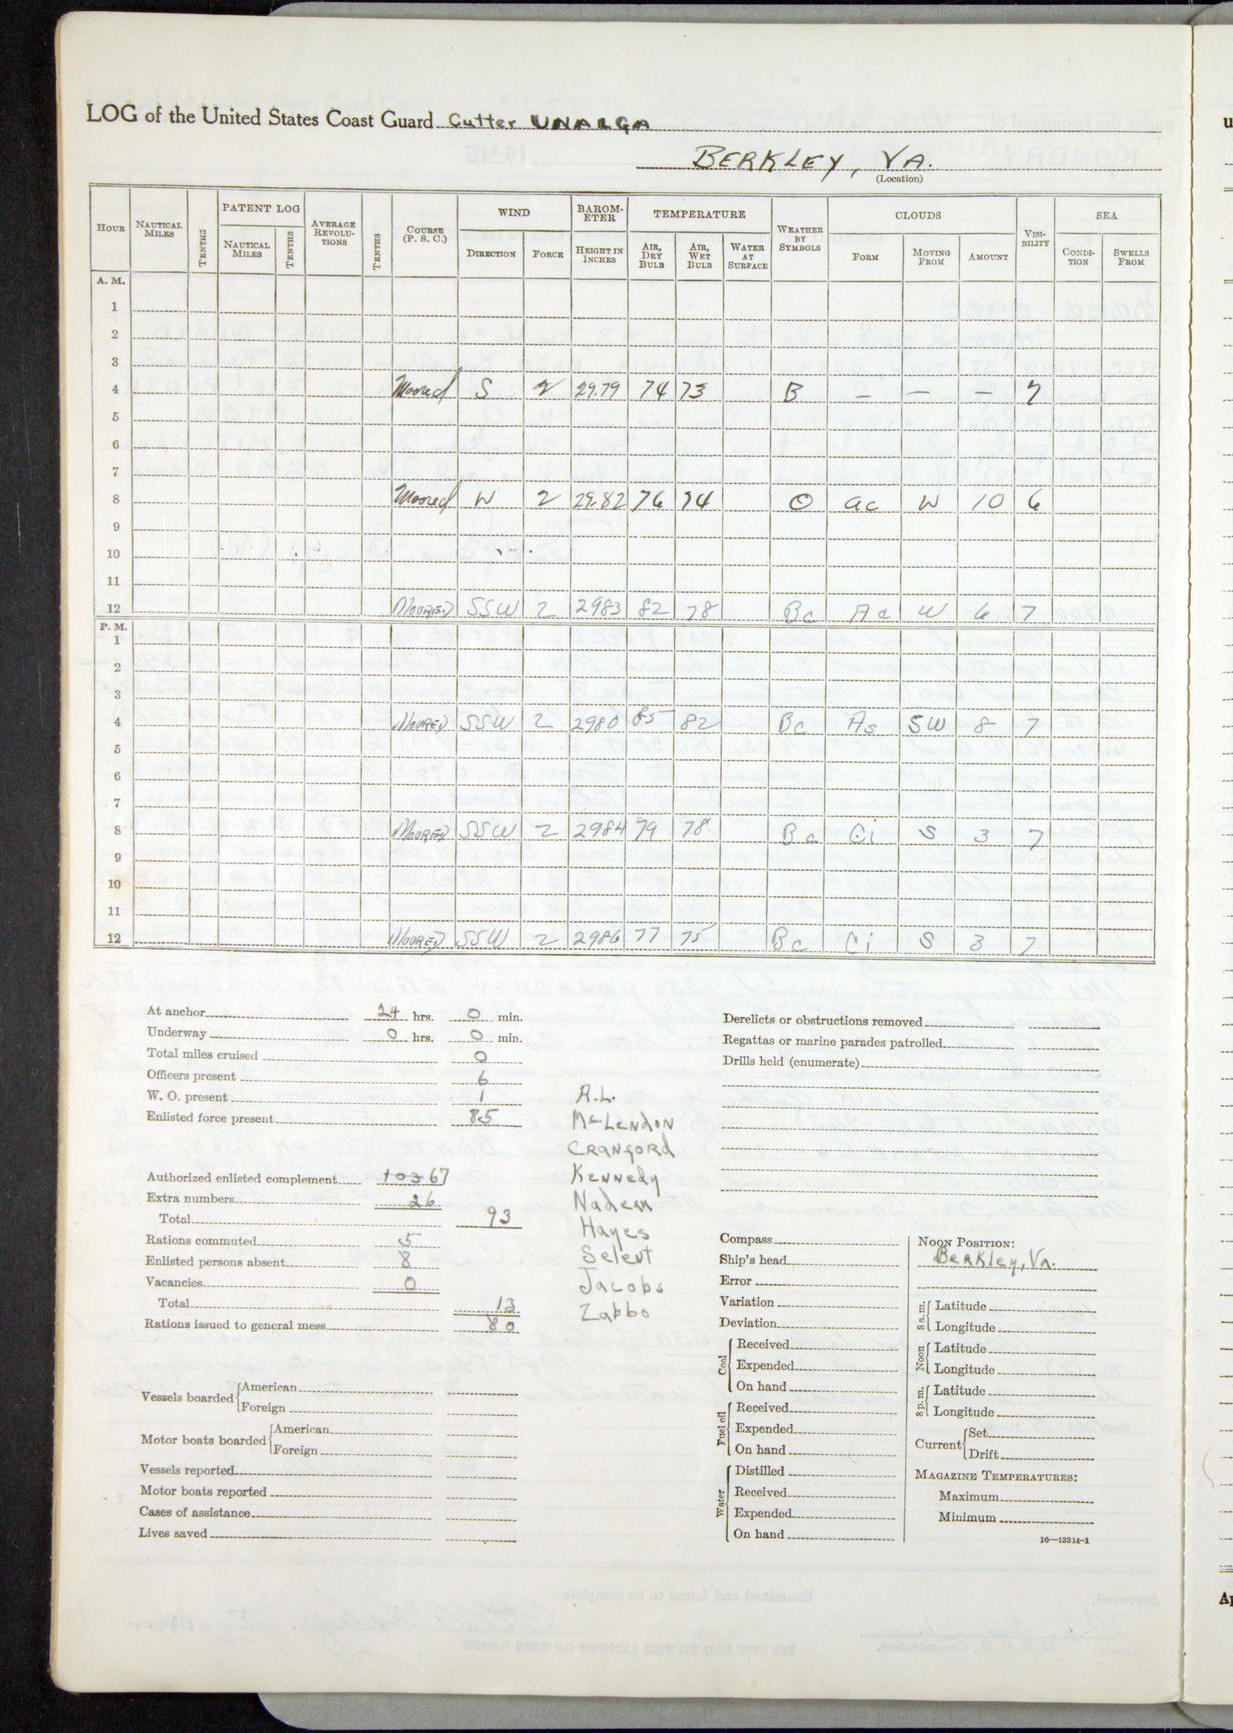 LOG of the United States Coast Guard Cutter UNALGA
BERKLEY, VA.
(Location)
HOUR NAUTICAL MILES TENTHS PATENT LOG NAUTICAL MILES TENTHS AVERAGE REVOLUTIONS TENTHS COURSE (P. S. C.) WIND DIRECTION FORCE BAROMETER HEIGHT IN INCHES TEMPERATURE AIR, DRY BULB AIR, WET BULB WATER AT SURFACE WEATHER BY SYMBOLS CLOUDS FORM MOVING FROM AMOUNT VISIBILITY SEA CONDITION SWELLS FROM
A. M.
1
2
3
4 Moored S 2 29.79 74 73 B — — — 7
5
6
7
8 Moored W 2 29.82 76 74 O ac W 10 6
9
10
11
12 MOORED SSW 2 2983 82 78 Bc Ac W 6 7
P. M.
1
2
3
4 MOORED SSW 2 2980 85 82 Bc As SW 8 7
5
6
7
8 MOORED SSW 2 2984 79 78 Bc Ci S 3 7
9
10
11
12 MOORED SSW 2 2986 77 75 Bc Ci S 3 7
At anchor 24 hrs. 0 min.
Underway 0 hrs. 0 min.
Total miles cruised 0
Officers present 6
W. O. present 1
Enlisted force present 85
Authorized enlisted complement 103 67
Extra numbers 26
Total 93
Rations commuted 5
Enlisted persons absent 8
Vacancies 0
Total 13
Rations issued to general mess 80
Vessels boarded American
Foreign
Motor boats boarded American
Foreign
Vessels reported
Motor boats reported
Cases of assistance
Lives saved
A.L.
McLENDON
CRANFORD
KENNEDY
Nadem
Hayes
Selent
Jacobs
Zabbo
Derelicts or obstructions removed
Regattas or marine parades patrolled
Drills held (enumerate)
Compass
Ship's head
Error
Variation
Deviation
Coal Received
Expended
On hand
Fuel oil Received
Expended
On hand
Water Distilled
Received
Expended
On hand
NOON POSITION:
Berkley, Va.
8 a. m. Latitude
Longitude
Noon Latitude
Longitude
8 p. m. Latitude
Longitude
Current Set
Drift
MAGAZINE TEMPERATURES:
Maximum
Minimum
16—13314-1